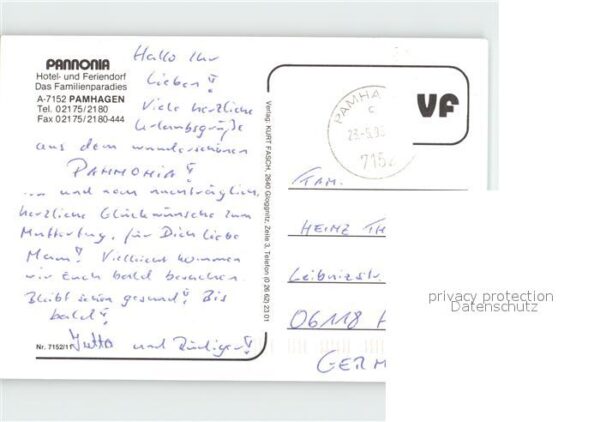 PANNONIA
Hotel- und Feriendorf
Das Familienparadies
A-7152 PAMHAGEN
Tel. 02175/2180
Fax 02175/2180-444
Hallo Ihr
Lieben!
Viele herzliche
Urlaubsgrüße
aus dem wunderschönen
PANNONIA!
... und noch nachträglich
herzliche Glückwünsche zum
Muttertag, für Dich liebe
Mam! Vielleicht kommen
wir Euch bald besuchen.
Bleibt schön gesund! Bis
bald!
Jutta und Rüdiger!
Nr. 7152/1
Verlag: KURT FASCH, 2640 Gloggnitz, Zeile 3, Telefon (0 26 62) 23 01
PAMHA
c
7152
VF
FAM.
HEINZ TH
Leibnizstr.
06118 H
GERM
privacy protection
Datenschutz